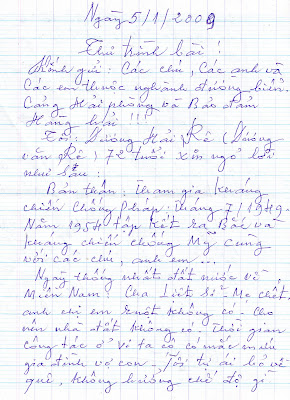 Ngày 5/1/2009
Thư trình bài !
Kính gửi : Các chú, Các anh và
Các em thuộc nghành đường biển.
Cảng Hải phòng và Bảo đảm
Hàng hải !!!
Tôi : Dương Hải Rê (Dương
văn Rê) 72 tuổi xin ngỏ lời
như sau :
Bản thân : Tham gia kháng
chiến Chống Pháp : tháng 7/1949.
Năm 1954 tập kết ra Bắc và
kháng chiến chống Mỹ cùng
với các chú, anh em ...
Ngày thống nhất đất nước về
Miền Nam : Cha Liệt Sĩ - Mẹ chết.
anh chị em ruột không có. Cho
nên nhà đất không có. Thời gian
công tác ở vị ta cô có mắc mứu
gia đình vợ con. Tôi tự ái bỏ về
quê, không hưởng chế độ gì